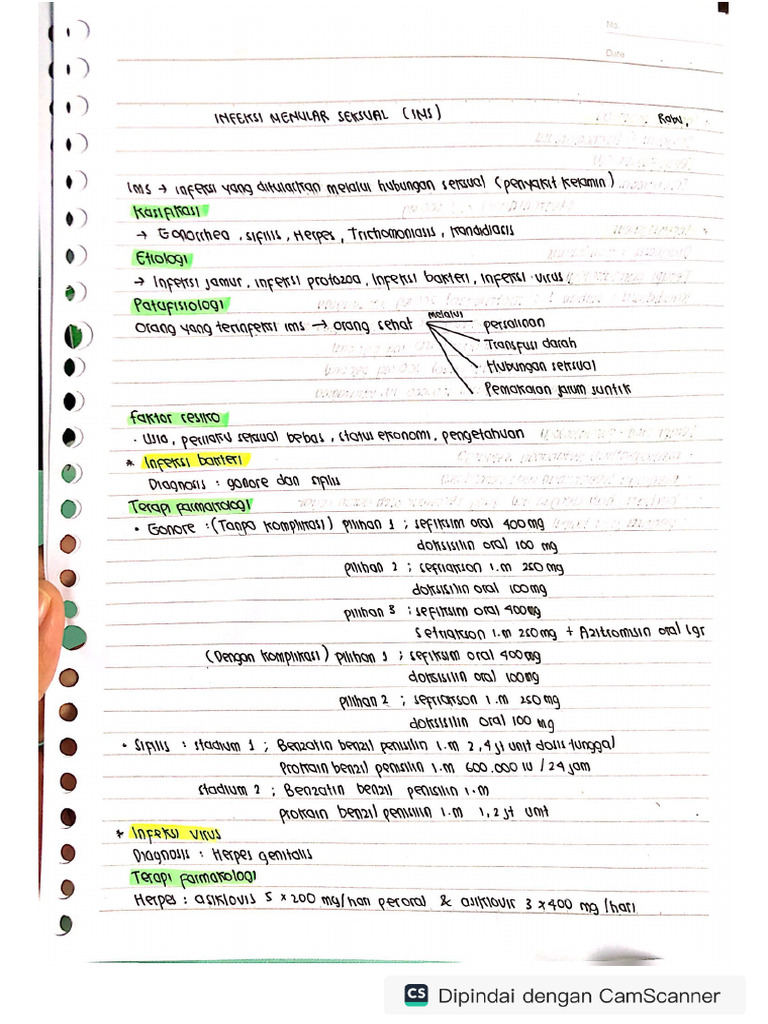 No.
Date
INFEKSI MENULAR SEKSUAL (IMS)
Rabu,
IMS → infeksi yang ditularkan melalui hubungan seksual (penyakit kelamin)
Kasifikasi
→ Gonorrhea, sifilis, Herpes, Trichomoniasis, kandidiasis
Etiologi
→ Infeksi jamur, infeksi protozoa, infeksi bakteri, infeksi virus
Patafisiologi
Orang yang terinfeksi ims → orang sehat melalui persalinan
Transfusi darah
Hubungan seksual
Pemakaian jarum suntik
faktor resiko
· usia, perilaku seksual bebas, status ekonomi, pengetahuan
* Infeksi bakteri
Diagnosis : gonore dan sifilis
Terapi farmakologi
• Gonore : (Tanpa komplikasi) pilihan 1 ; sefiksim oral 400 mg
doksisilin oral 100 mg
pilihan 2 ; sefriakson i.m 250 mg
doksisilin oral 100mg
pilihan 3 ; sefiksim oral 400mg
Sefriakson i.m 250mg + Azitromisin oral 1gr
(Dengan komplikasi) pilihan 1 ; sefiksim oral 400mg
doksisilin oral 100mg
pilihan 2 ; sefriakson i.m 250 mg
doksisilin oral 100 mg
• Sifilis : stadium 1 ; Benzatin benzil penisilin i.m 2,4 jt unit dosis tunggal
Prokain benzil penisilin i.m 600.000 IU / 24 jam
stadium 2 ; Benzatin benzil penisilin i.m
prokain benzil penisilin i.m 1,2 jt unit
* Infeksi virus
Diagnosis : Herpes genitalis
Terapi farmakologi
Herpes : asiklovis 5 x 200 mg/hari peroral & asiklovir 3 x 400 mg /hari
CS Dipindai dengan CamScanner